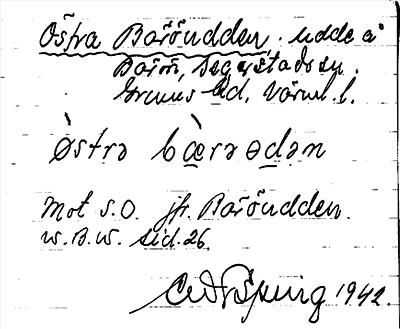 Östra Baröudden, udde å
Barön, Segerstads sn.
Grums hd. Värml. l.
östrə bærəədən
Mot S.O. jfr. Baröudden.
w. B. w. sid. 26.
1942.